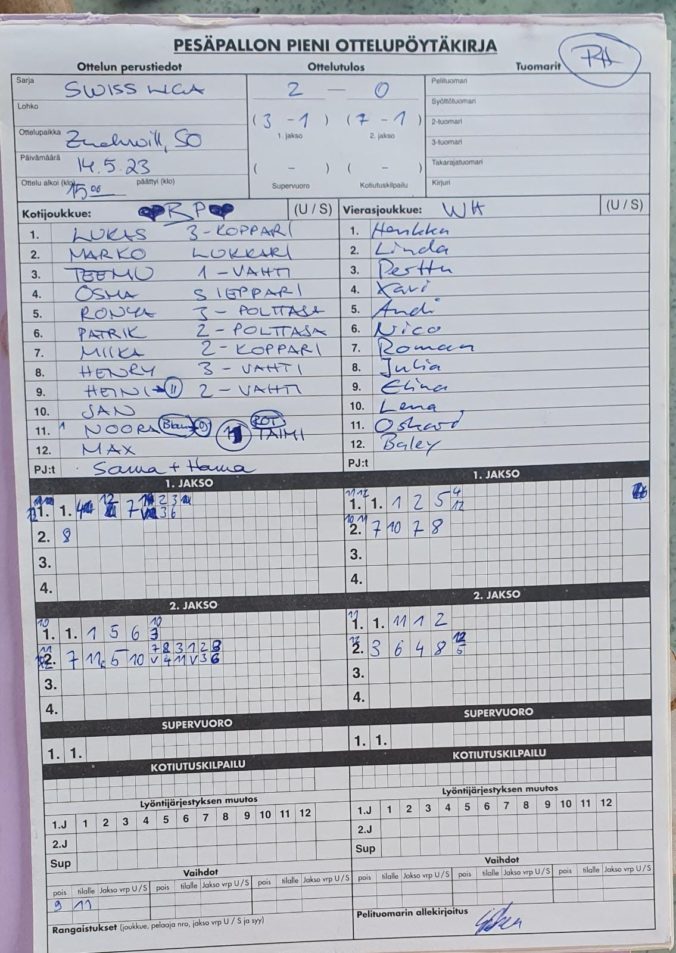 PESÄPALLON PIENI OTTELUPÖYTÄKIRJA
Ottelun perustiedot Ottelutulos Tuomarit
Sarja SWISS LIIGA 2 - 0 Pelituomari
Lohko Syöttötuomari
(3 - 1) (7 - 1) 2-tuomari
Ottelupaikka Zuchwill, SO 1. jakso 2. jakso 3-tuomari
Päivämäärä 14.5.23 ( - ) ( - ) Takarajatuomari
Ottelu alkoi (klo) 15.00 päättyi (klo) Supervuoro Kotiutuskilpailu Kirjuri
Kotijoukkue: RP (U / S) Vierasjoukkue: WH (U / S)
1. LUKAS 3-KOPPARI 1. Henkka
2. MARKO LUKKARI 2. Linda
3. TEEMU 1-VAHTI 3. Perttu
4. OSMA SIEPPARI 4. Xavi
5. RONYA 3-POLTTAJA 5. Andi
6. PATRIK 2-POLTTAJA 6. Nico
7. MIIKA 2-KOPPARI 7. Roman
8. HENRY 3-VAHTI 8. Julia
9. HEINI → 11 2-VAHTI 9. Elina
10. JAN 10. Lena
11. NOORA TAIMI 11. Oskard
12. MAX 12. Baley
PJ:t Sanna + Hanna PJ:t
1. JAKSO 1. JAKSO
1. 1. 7 1. 1. 1 2 5
2. 8 2. 7 10 7 8
3. 3.
4. 4.
2. JAKSO 2. JAKSO
1. 1. 1 5 6 1. 1. 11 1 2
2. 7 11 5 10 2. 3 6 4 8
3. 3.
4. 4.
SUPERVUORO SUPERVUORO
1. 1. 1. 1.
KOTIUTUSKILPAILU KOTIUTUSKILPAILU
Lyöntijärjestyksen muutos Lyöntijärjestyksen muutos
1.J 1 2 3 4 5 6 7 8 9 10 11 12 1.J 1 2 3 4 5 6 7 8 9 10 11 12
2.J 2.J
Sup Sup
Vaihdot Vaihdot
pois tilalle Jakso vrp U / S pois tilalle Jakso vrp U / S pois tilalle Jakso vrp U / S pois tilalle Jakso vrp U / S pois tilalle Jakso vrp U / S pois tilalle Jakso vrp U / S
9 11
Rangaistukset (joukkue, pelaaja nro, jakso vrp U / S ja syy) Pelituomarin allekirjoitus